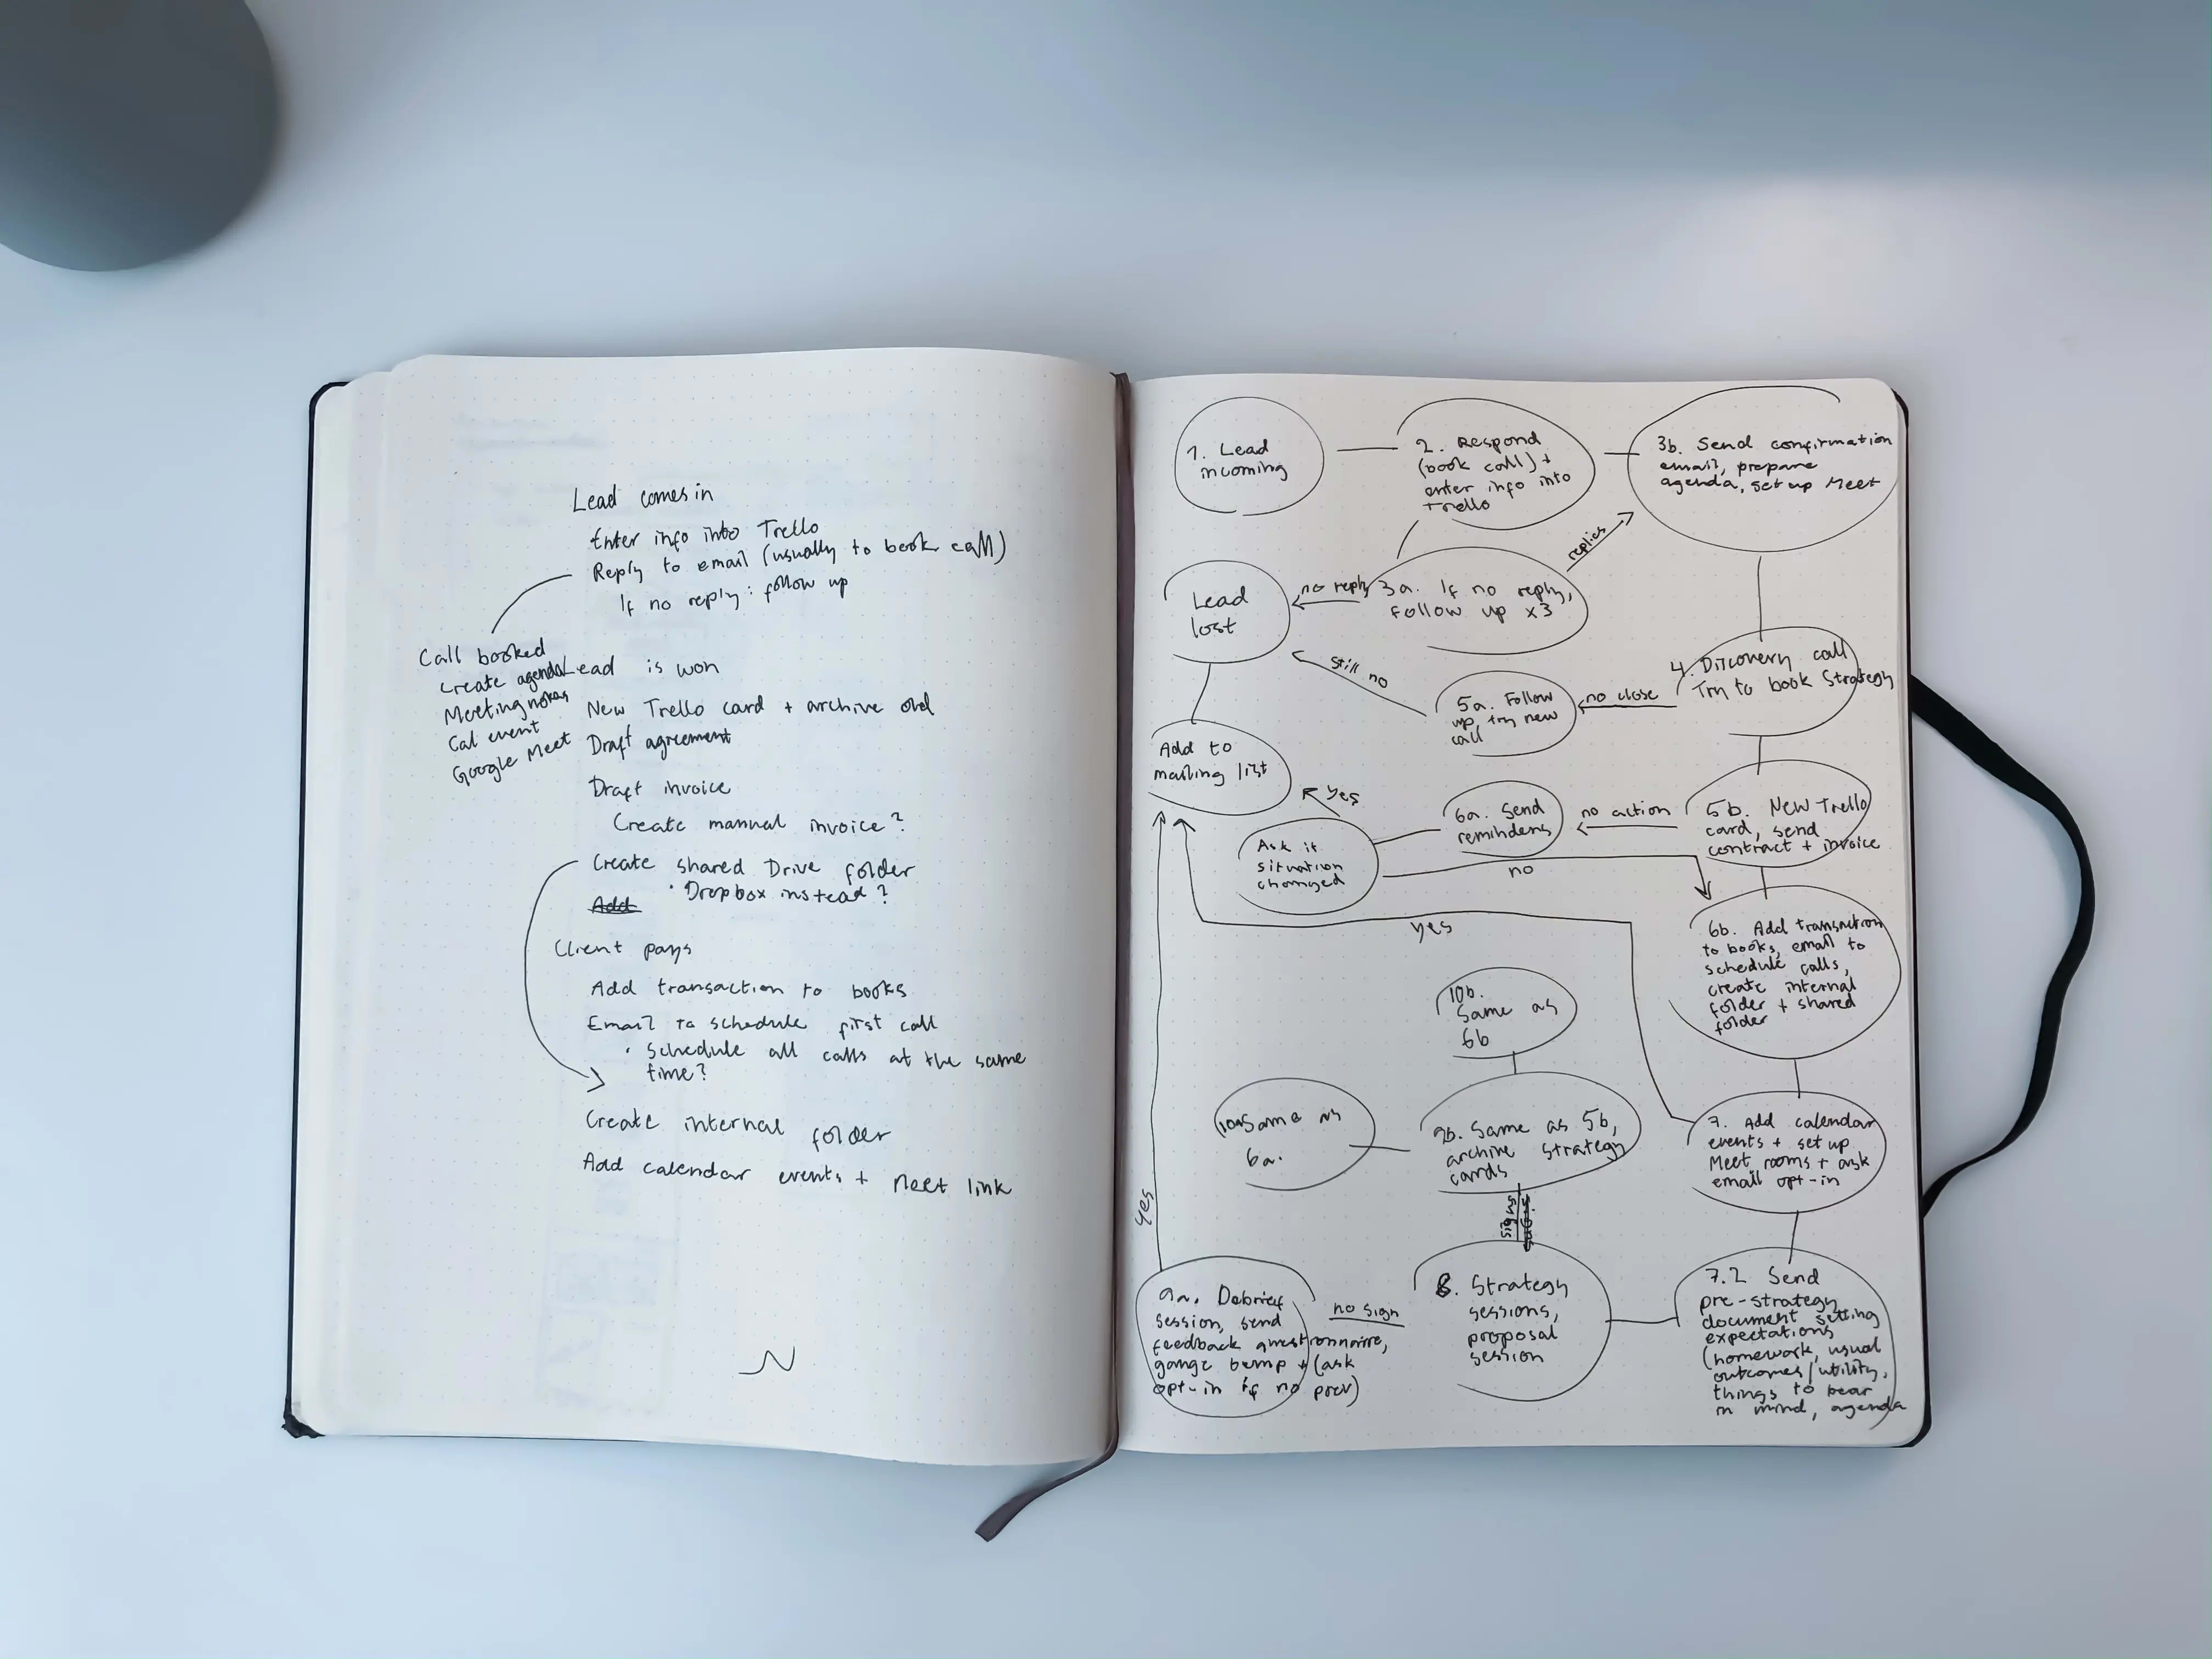 Lead comes in
Enter info into Trello
Reply to email (usually to book call)
If no reply: follow up
Call booked
Create agenda
Meeting notes
Cal event
Google Meet
Lead is won
New Trello card + archive old
Draft agreement
Draft invoice
Create manual invoice?
Create shared Drive folder
· Dropbox instead?
Add
Client pays
Add transaction to books
Email to schedule first call
· Schedule all calls at the same
time?
Create internal folder
Add calendar events + Meet link
1. Lead
incoming
2. Respond
(book call) +
enter info into
Trello
3b. Send confirmation
email, prepare
agenda, set up Meet
replies
3a. If no reply,
follow up x3
no reply
Lead
lost
4. Discovery call
Try to book Strategy
no close
5a. Follow
up, try new
call
still no
Add to
mailing list
5b. New Trello
card, send
contract + invoice
no action
6a. Send
reminders
Ask if
situation
changed
yes
no
6b. Add transaction
to books, email to
schedule calls,
create internal
folder + shared
folder
yes
7. Add calendar
events + set up
Meet rooms + ask
email opt-in
7.2 Send
pre-strategy
document setting
expectations
(homework, usual
outcomes/utility,
things to bear
in mind, agenda
8. Strategy
sessions,
proposal
session
signs
signs
9b. Same as 5b,
archive strategy
cards
10b.
Same as
6b
10a Same as
6a.
no sign
9a. Debrief
session, send
feedback questionnaire,
+ (ask
opt-in if no prev)
yes